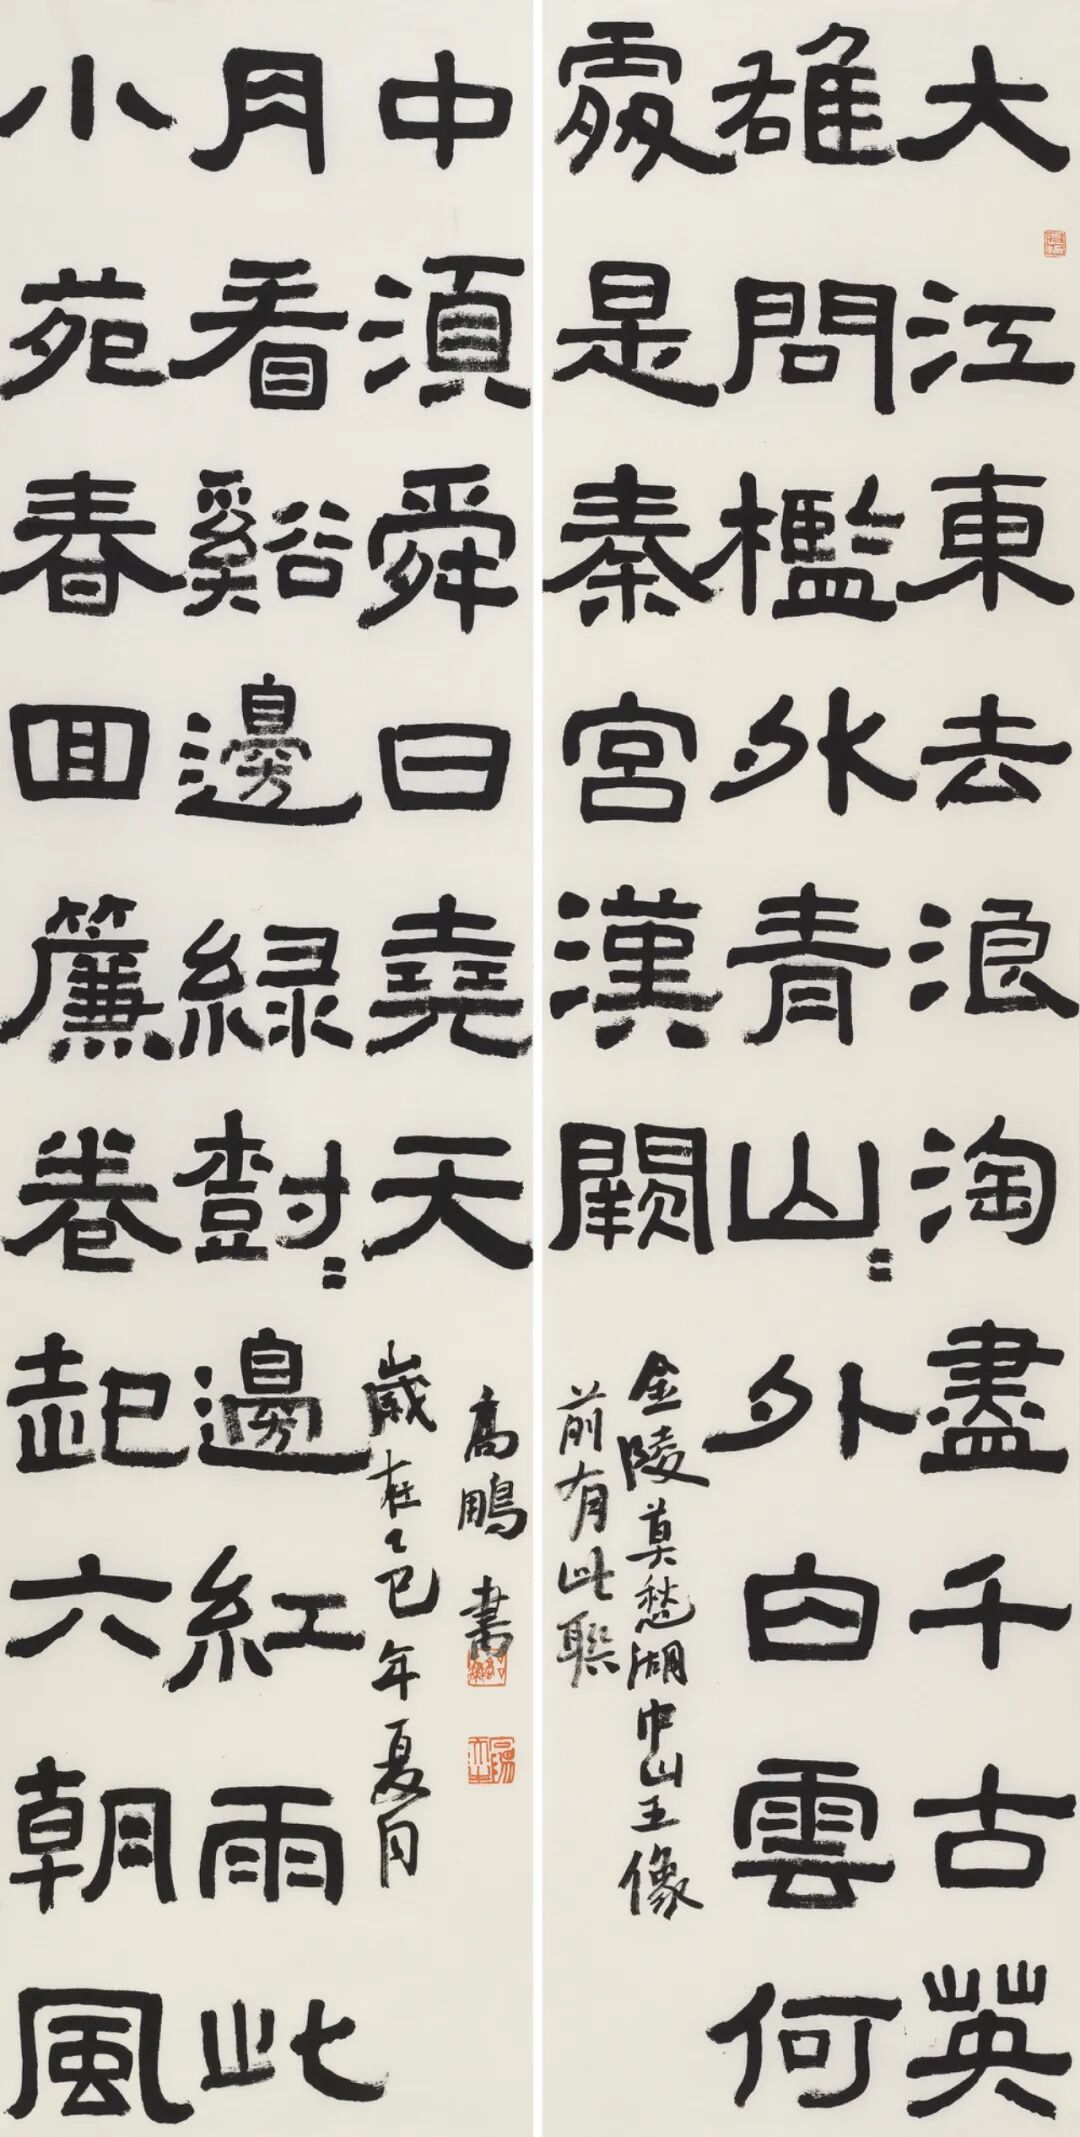 大江東去浪淘盡千古英
雄問檻外青山〻外白雲何
處是秦宮漢闕
金陵莫愁湖中山王像
前有此聯
小苑春回簾卷起六朝風
月看谿邊綠樹〻邊紅雨此
中湏舜日堯天
歲在乙巳年夏月
高鵬書